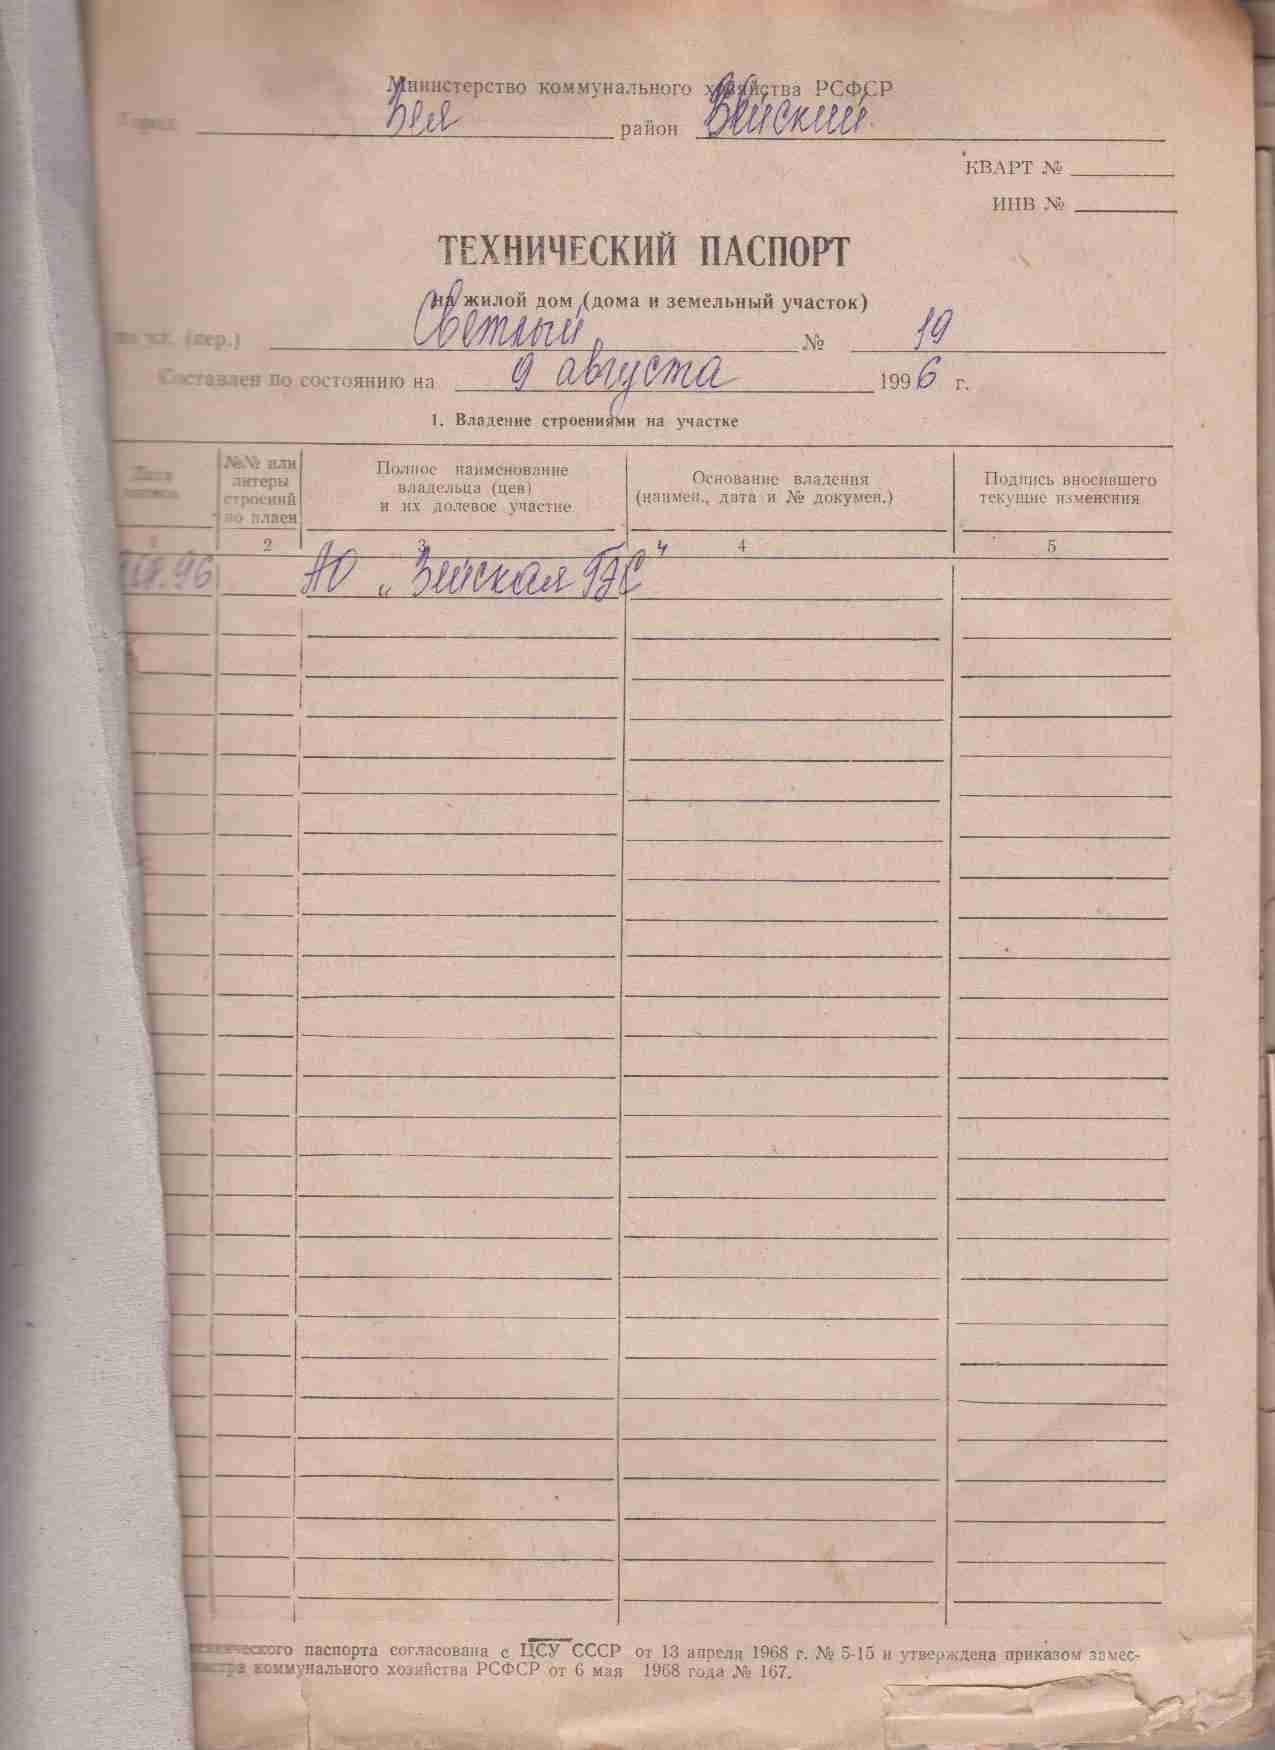 Министерство коммунального хозяйства РСФСР
Город Зея район Зейский
КВАРТ №
ИНВ №
ТЕХНИЧЕСКИЙ ПАСПОРТ
на жилой дом (дома и земельный участок)
по ул. (пер.) Светлый № 19
Составлен по состоянию на 9 августа 1996 г.
1. Владение строениями на участке
Дата записи
№№ или литеры строений по плаен
Полное наименование владельца (цев) и их долевое участие
Основание владения (наимен., дата и № докумен.)
Подпись вносившего текущие изменения
1 2 3 4 5
96 АО „Зейская ГЭС"
паспорта согласована с ЦСУ СССР от 13 апреля 1968 г. № 5-15 и утверждена приказом замес-
коммунального хозяйства РСФСР от 6 мая 1968 года № 167.